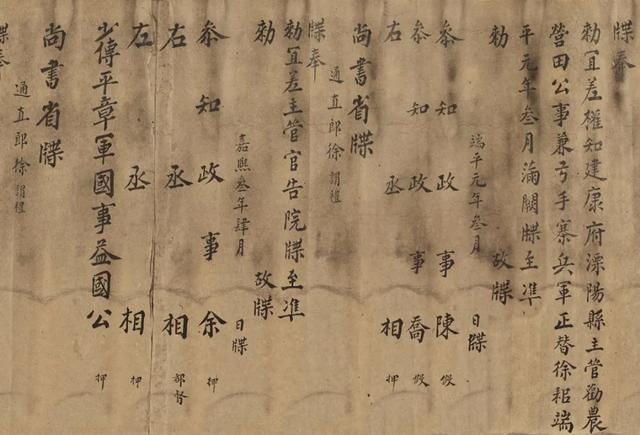 牒奉
勑宜差權知建康府溧陽縣主管勸農
營田公事兼弓手寨兵軍正替徐秬端
平元年叄月滿闕牒至準
勑 故牒
端平元年叄月 日牒
叅知政事陳 假
叅知政事喬 假
右丞相 押
尚書省牒
通直郎徐謂禮
牒奉
勑宜差主管官告院牒至準
勑 故牒
嘉熙叄年肆月 日牒
叅知政事余 押
右丞相 都督
左丞相 押
少傅平章軍國事益國公 押
尚書省牒
通直郎徐謂禮
牒奉